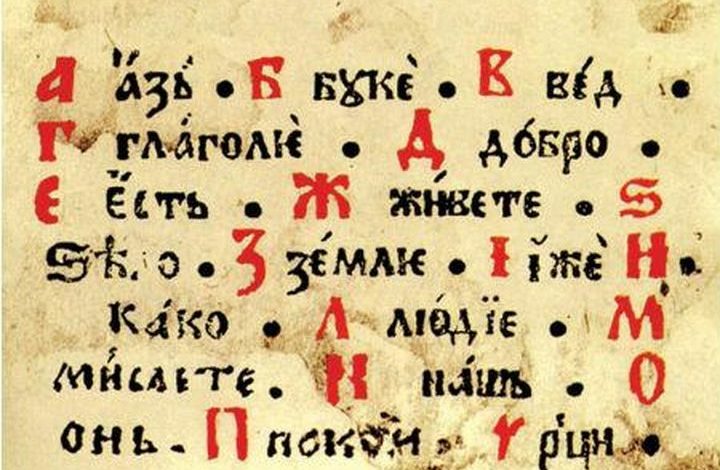 А а́зъ • Б букѐ • В ве́д •
Г глаголѥ̀ • Д до́бро •
Е Е́сть • Ж живете • Ѕ
• З зе́млѥ • І і́жѐ И •
ка́ко • Л лю́дїе • М
ми́слете • Н на́шь • О
онь • П покои • ч рци •